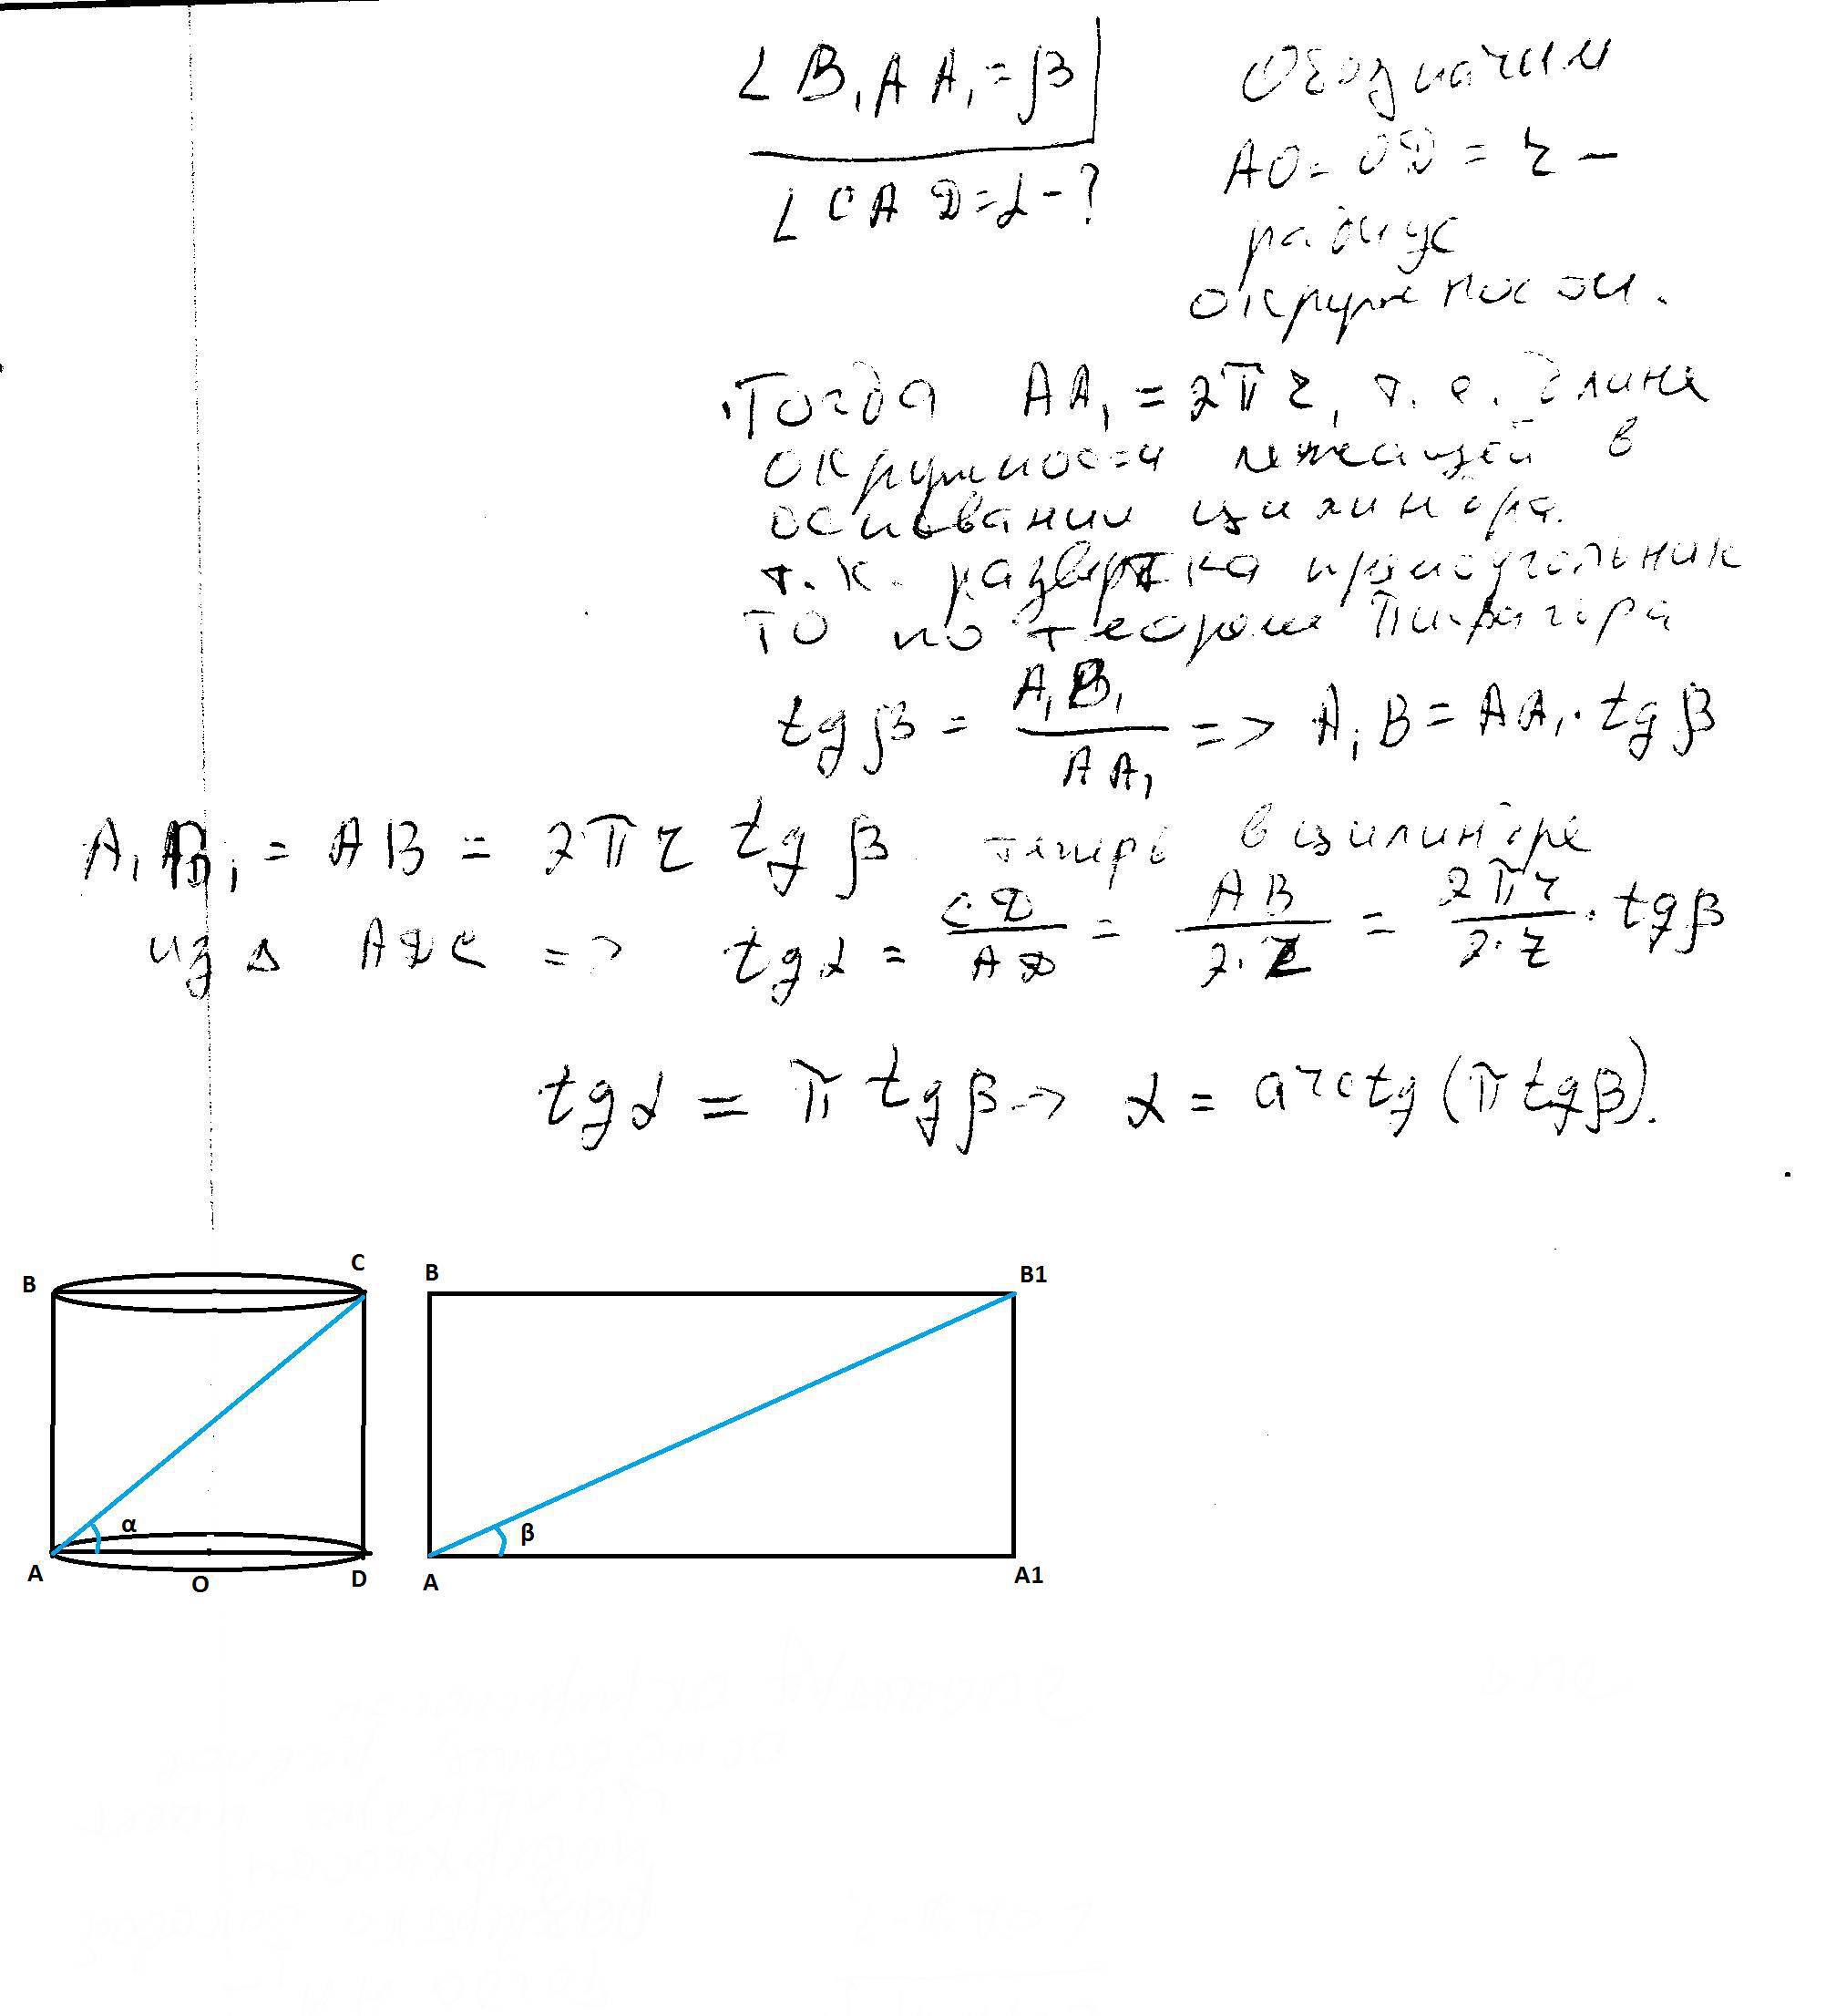 ∠B₁AA₁=β
∠CAD=α-?
Обозначим
AO=OD=r –
радиус
окружности.
Тогда AA₁=2πr, т.е. длина
окружности лежащей в
основании цилиндра.
т.к. развертка прямоугольник
то по теореме Пифагора
tgβ = A₁B₁/AA₁ => A₁B = AA₁·tgβ
A₁B₁ = AB = 2πr tgβ теперь в цилиндре
из Δ ADC => tgα = CD/AD = AB/2·r = 2πr/2·r · tgβ
tgα = π tgβ -> α = arctg(π tgβ).
B C B B1
α β
A O D A A1